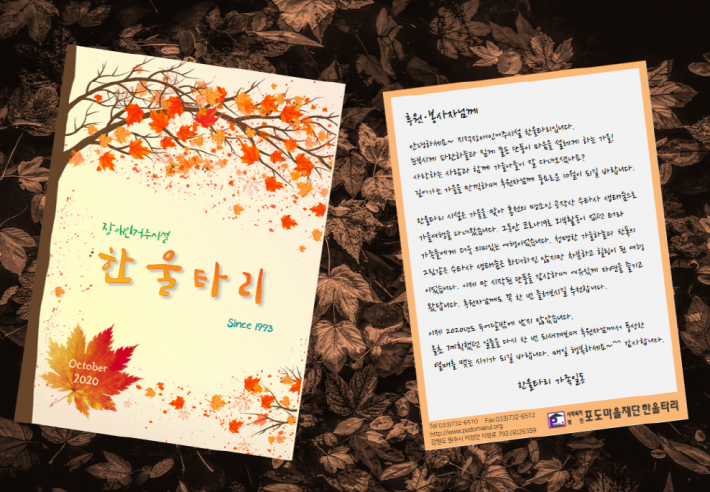 장애인거주시설
한울타리
Since 1993
October
2020
후원·봉사자님께
안녕하세요~ 지적장애인거주시설 한울타리입니다.
눈부시게 파란하늘과 짙게 물든 단풍이 마음을 설레게 하는 가을!
사랑하는 사람과 함께 가을나들이 잘 다녀오셨나요?
깊어가는 가을을 만끽하며 후원자님께 풍요로운 10월이 되길 바랍니다.
한울타리 시설은 가을을 맞아 홍천의 명소인 공작산 수타사 생태숲으로
가을여행을 다녀왔습니다. 그동안 코로나19로 외부활동이 없던 터라
가족들에게 더욱 의미있는 여행이었습니다. 청명한 가을하늘과 단풍의
고즈넉한 수타사 생태숲은 화려하진 않지만 차분하고 힐링이 된 여행
이었습니다. 이제 막 시작된 단풍을 감상하며 여유있게 자연을 즐기고
왔답니다. 후원자님께도 꼭 한 번 들러보시길 추천합니다.
이제 2020년도 두어달밖에 남지 않았습니다.
올초 계획했던 일들을 다시 한 번 되새겨보며 후원자님께서 풍성한
열매를 맺는 시기가 되길 바랍니다. 매일 행복하세요~^^ 감사합니다.
한울타리 가족일동
Tel 033)732-6510 Fax 033)732-6512
http://www.podomaeul.org
강원도 원주시 지정면 지정로 793 (우)26359
사회복지법인 포도마을재단 한울타리